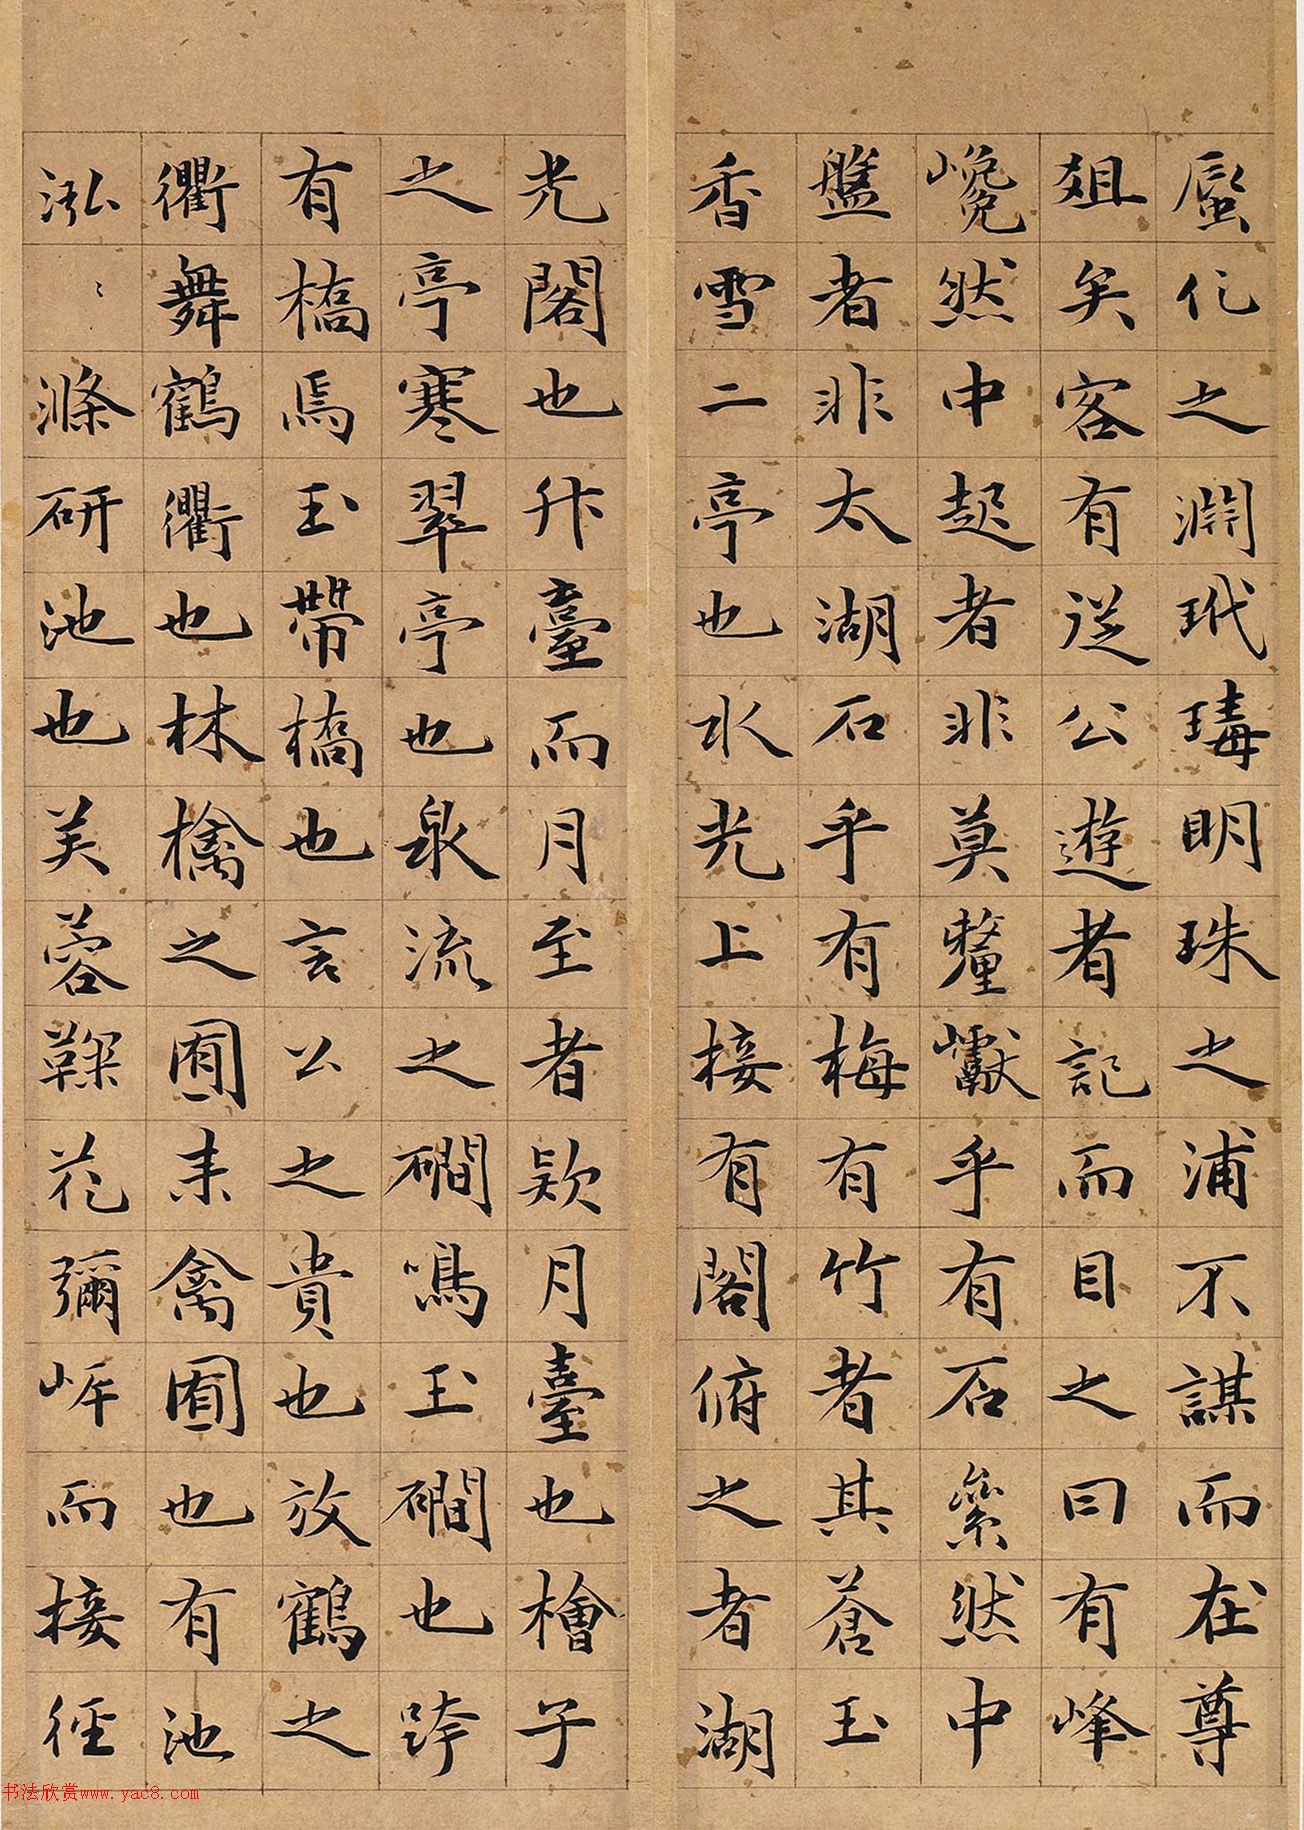 蜃仡之淵玳瑇明珠之浦不謀而在尊
俎矣客有従公遊者記而目之曰有峰
巉然中起者非莫釐巘乎有石纍然中
盤者非太湖石乎有梅有竹者其蒼玉
香雪二亭也水光上接有閣俯之者湖
光閣也升臺而月至者欵月臺也檜子
之亭寒翠亭也泉流之磵鳴玉磵也跨
有橋焉玉帶橋也言公之貴也放鶴之
衢舞鶴衢也林檎之囿来禽囿也有池
泓〻滌研池也芙蓉鞠花彌岸而接徑
书法欣赏www.yac8.com